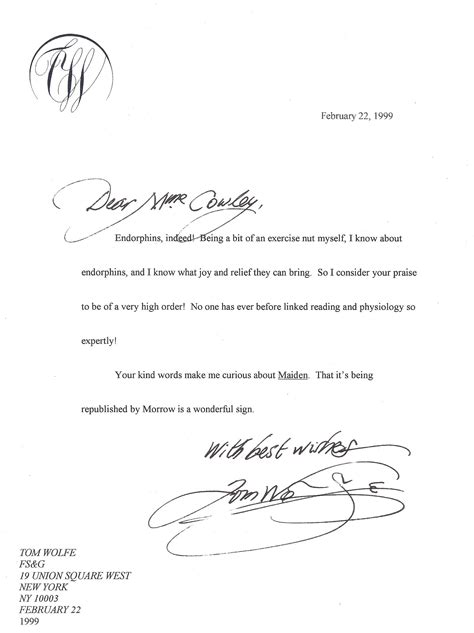 February 22, 1999
Dear Mme Cowley,
Endorphins, indeed! Being a bit of an exercise nut myself, I know about
endorphins, and I know what joy and relief they can bring. So I consider your praise
to be of a very high order! No one has ever before linked reading and physiology so
expertly!
Your kind words make me curious about Maiden. That it's being
republished by Morrow is a wonderful sign.
With best wishes
Tom Wolfe
TOM WOLFE
FS&G
19 UNION SQUARE WEST
NEW YORK
NY 10003
FEBRUARY 22
1999